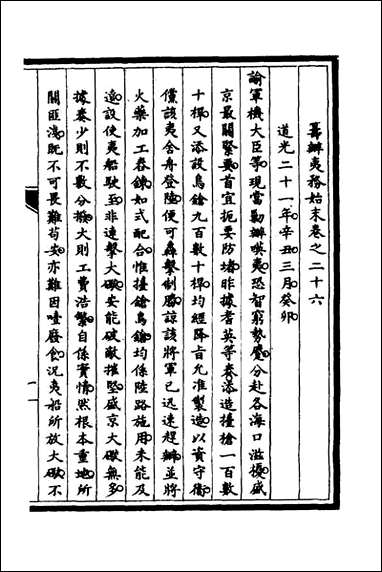 籌辦夷務始末卷之二十六
道光二十一年辛丑三月癸卯
諭軍機大臣等現當勦辦嘆夷恐智窮勢蹙分赴各海口滋擾盛
京最關緊要首宜扼要防堵昨據耆英等奏添造擡槍一百數
十桿又添設鳥鎗九百數十桿均經降旨允准製造以資守衛
儻該夷舍舟登陸便可轟擊制勝諒該將軍已迅速趕辦並將
火藥加工舂鍊如式配合惟擡鎗鳥鎗均係陸路施用未能及
遠設使夷船駛至非連擊大礮安能破敵摧堅盛京大礮無多
據奏少則不敷分撥大則工費浩繁自係實情然根本重地所
關匪淺既不可畏難苟安亦難因噎廢食況夷船所放大礮不
一